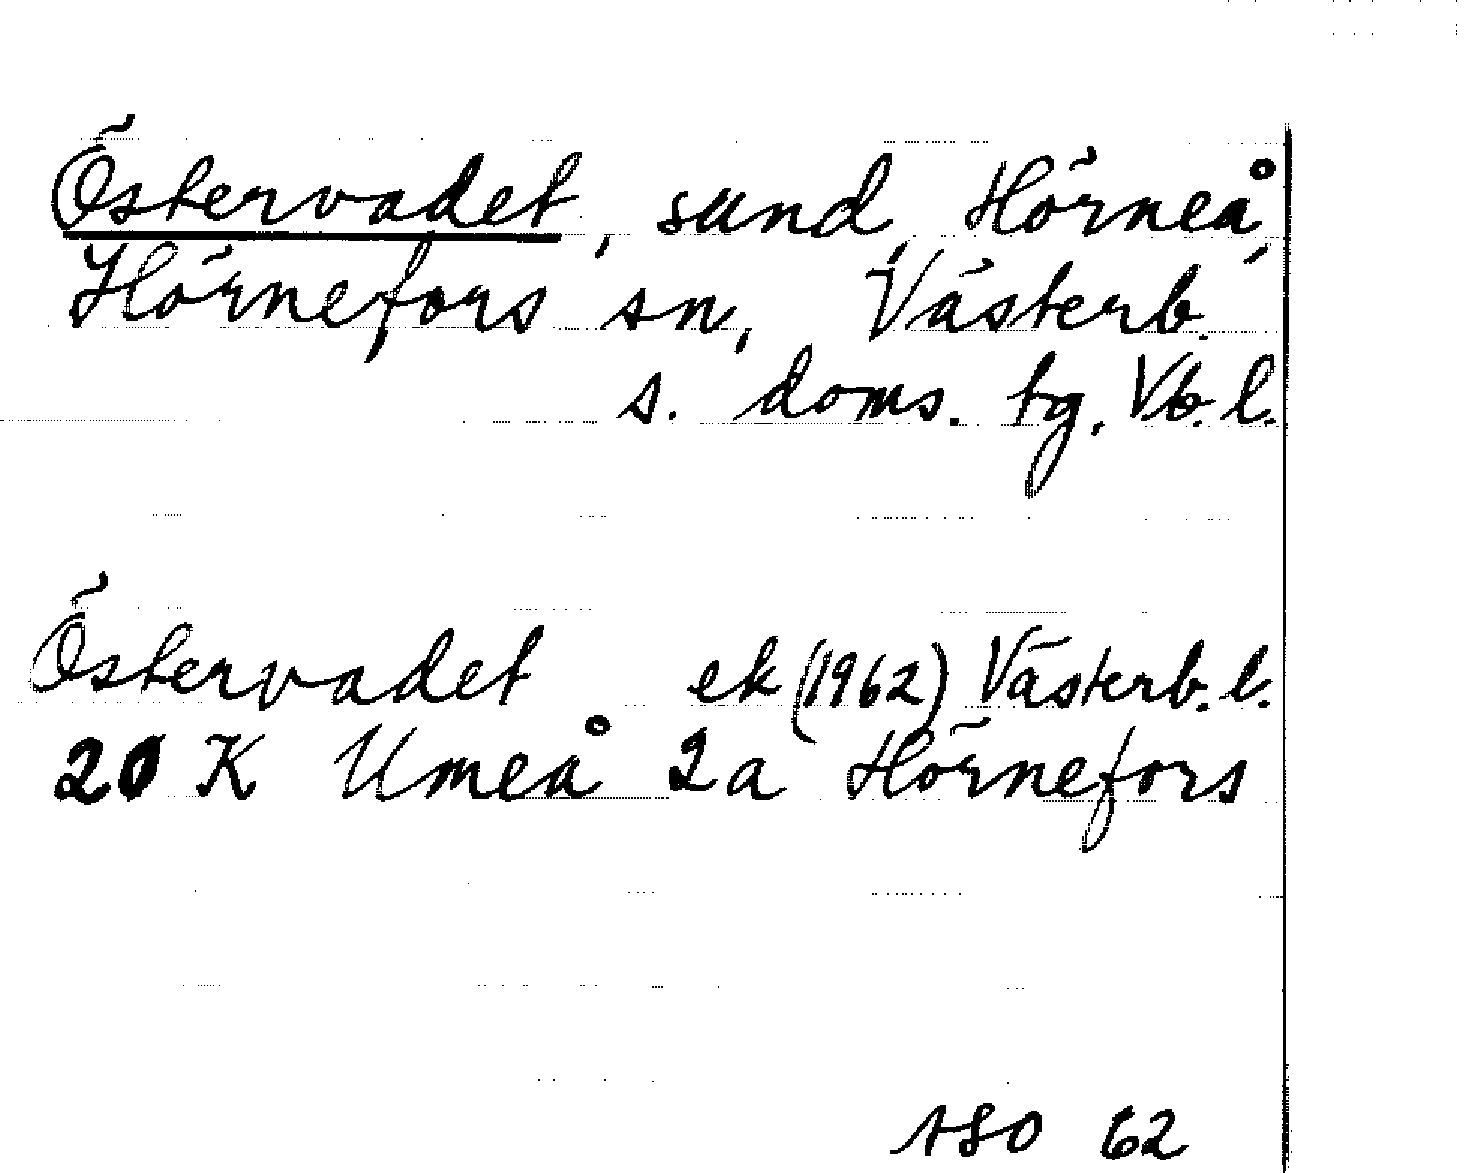 Östervadet, sund, Hörneå,
Hörnefors sn, Västerb.
s. doms. tg, Vb. l.
Östervadet ek (1962) Västerb. l.
20 K Umeå 2a Hörnefors
ASO 62